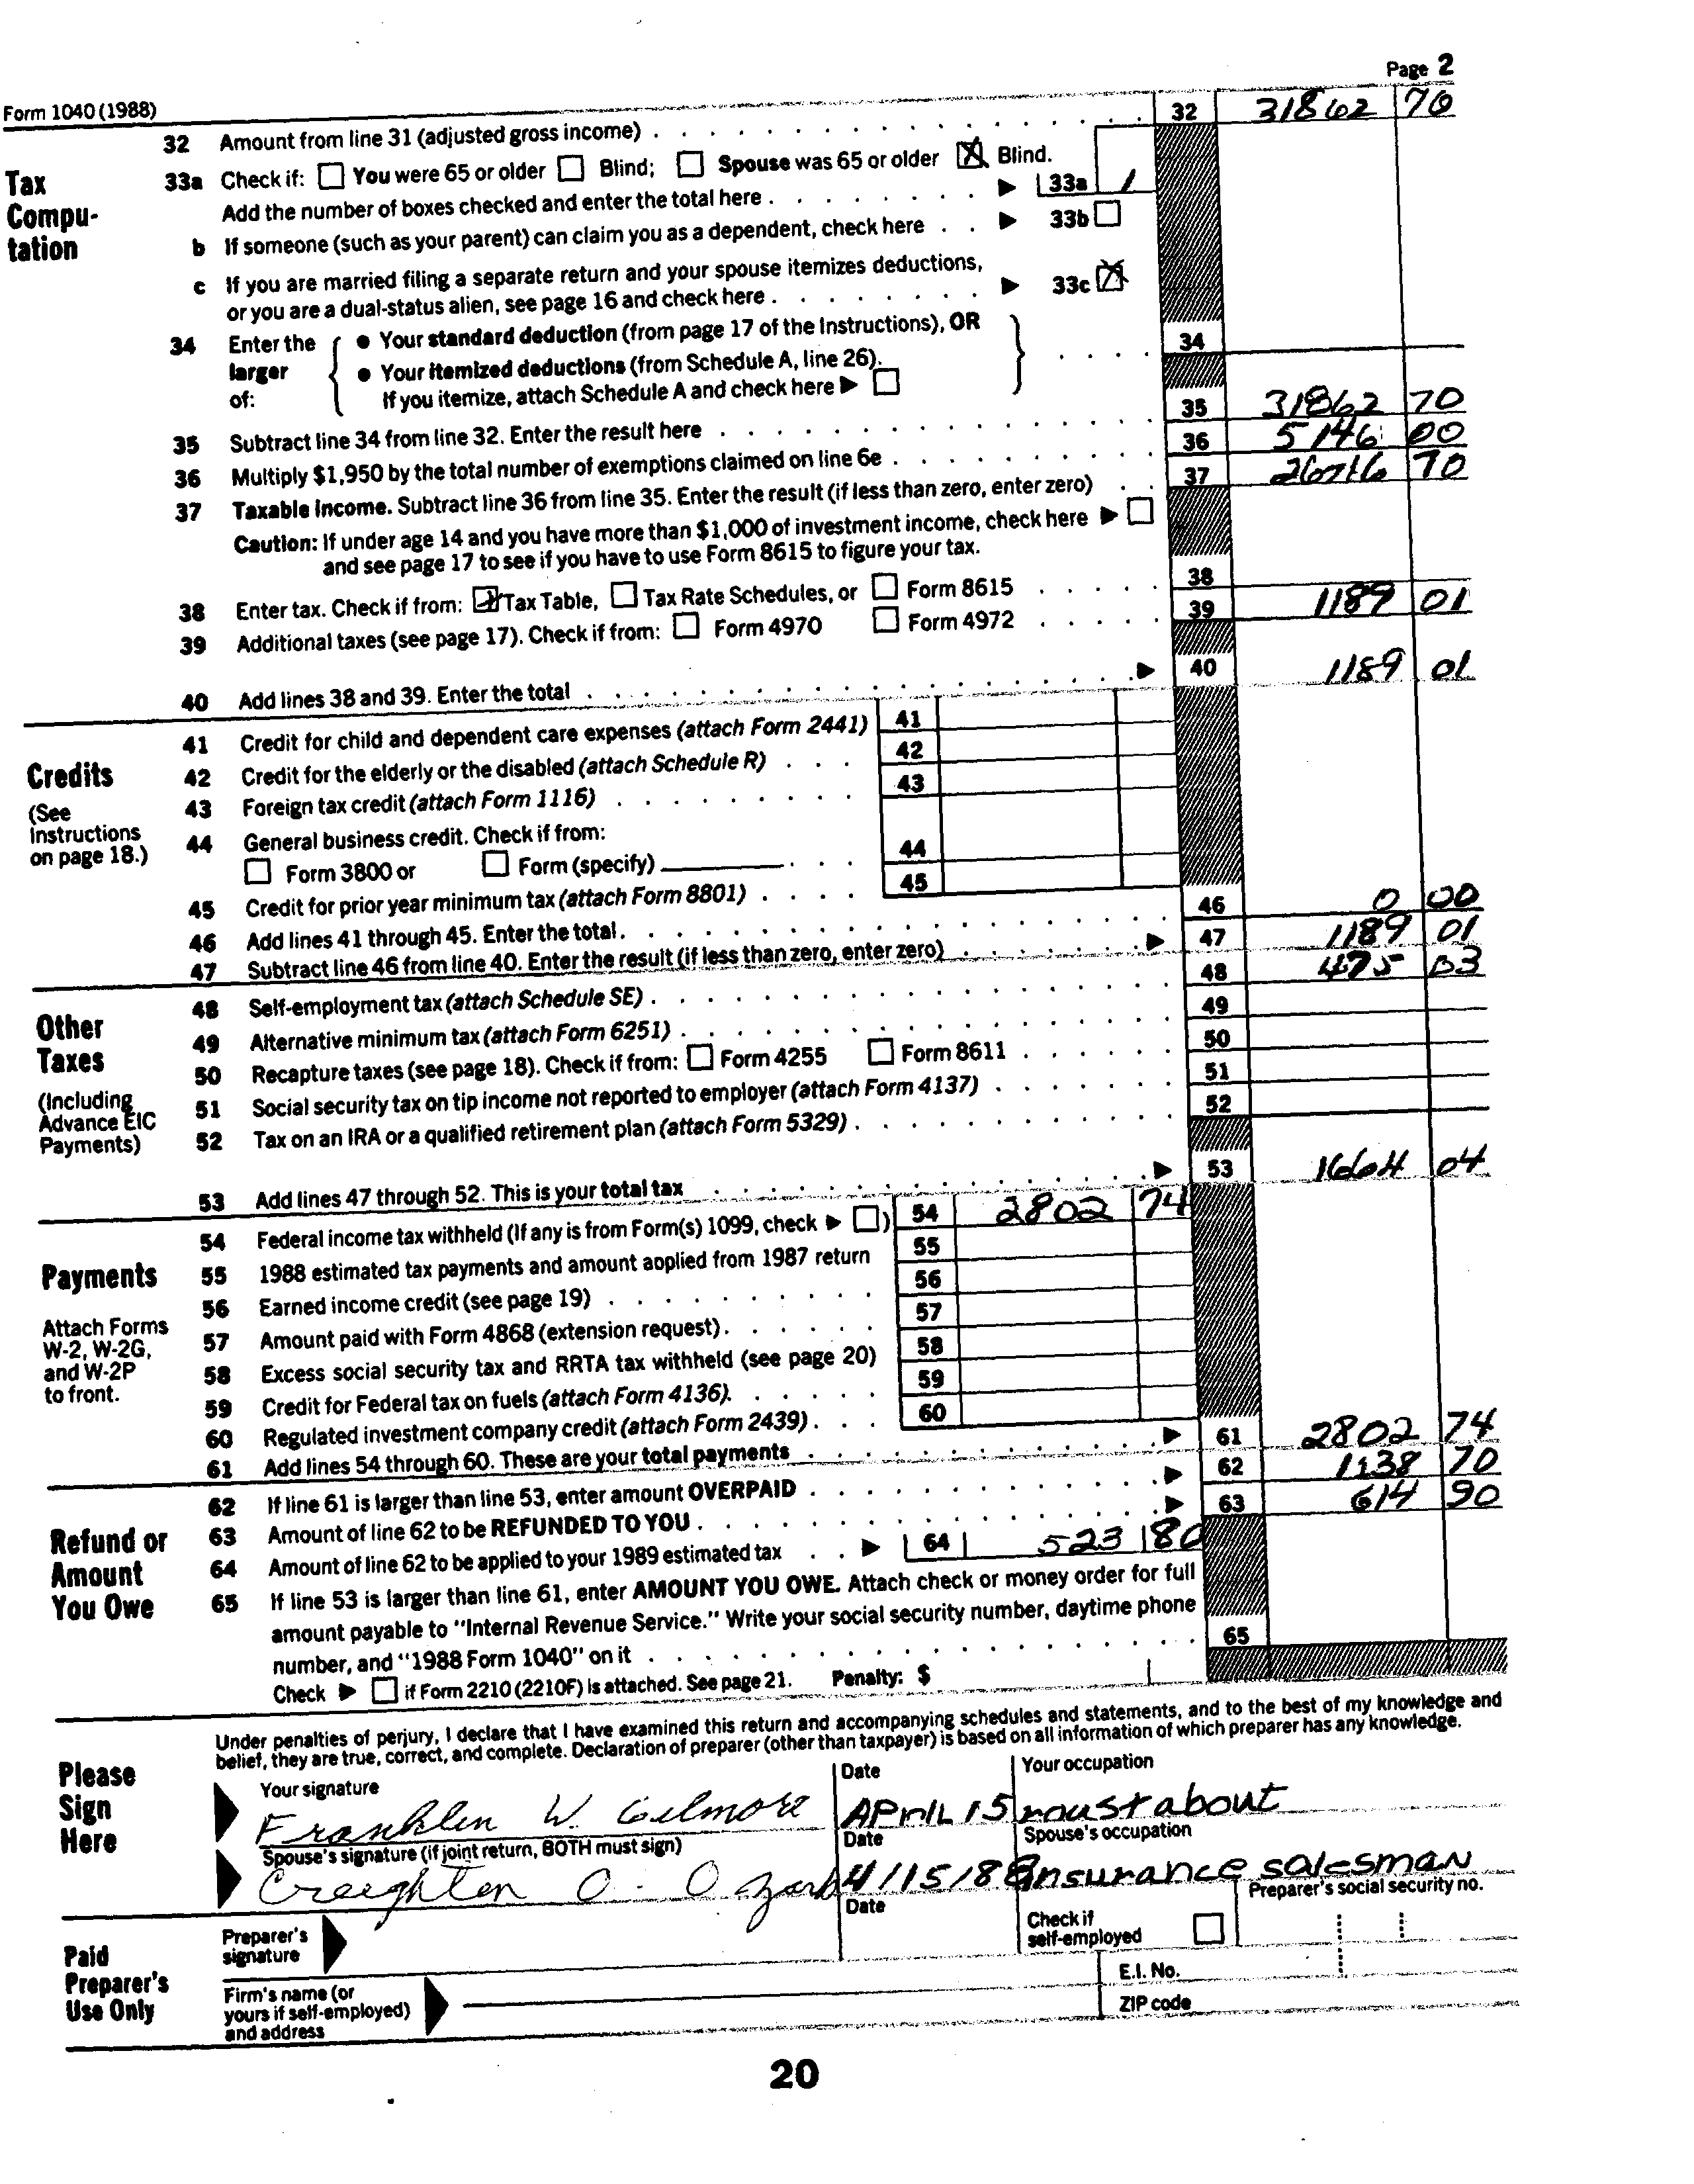 Page 2
Form 1040 (1988)
32 Amount from line 31 (adjusted gross income) 32 31862 70
Tax Compu-tation
33a Check if: You were 65 or older Blind; Spouse was 65 or older X Blind.
Add the number of boxes checked and enter the total here 33a 1
b If someone (such as your parent) can claim you as a dependent, check here 33b
c If you are married filing a separate return and your spouse itemizes deductions,
or you are a dual-status alien, see page 16 and check here 33c X
34 Enter the larger of:
• Your standard deduction (from page 17 of the Instructions), OR
• Your itemized deductions (from Schedule A, line 26).
If you itemize, attach Schedule A and check here
34
35 Subtract line 34 from line 32. Enter the result here 35 31862 70
36 Multiply $1,950 by the total number of exemptions claimed on line 6e 36 5146 00
37 Taxable income. Subtract line 36 from line 35. Enter the result (if less than zero, enter zero) 37 26716 70
Caution: If under age 14 and you have more than $1,000 of investment income, check here
and see page 17 to see if you have to use Form 8615 to figure your tax.
38 Enter tax. Check if from: X Tax Table, Tax Rate Schedules, or Form 8615 38
39 Additional taxes (see page 17). Check if from: Form 4970 Form 4972 39 1189 01
40 Add lines 38 and 39. Enter the total 40 1189 01
Credits
(See Instructions on page 18.)
41 Credit for child and dependent care expenses (attach Form 2441) 41
42 Credit for the elderly or the disabled (attach Schedule R) 42
43 Foreign tax credit (attach Form 1116) 43
44 General business credit. Check if from:
Form 3800 or Form (specify) 44
45 Credit for prior year minimum tax (attach Form 8801) 45
46 Add lines 41 through 45. Enter the total. 46 0 00
47 Subtract line 46 from line 40. Enter the result (if less than zero, enter zero) 47 1189 01
Other Taxes
(Including Advance EIC Payments)
48 Self-employment tax (attach Schedule SE) 48 475 03
49 Alternative minimum tax (attach Form 6251) 49
50 Recapture taxes (see page 18). Check if from: Form 4255 Form 8611 50
51 Social security tax on tip income not reported to employer (attach Form 4137) 51
52 Tax on an IRA or a qualified retirement plan (attach Form 5329) 52
53 Add lines 47 through 52. This is your total tax 53 1664 04
Payments
Attach Forms W-2, W-2G, and W-2P to front.
54 Federal income tax withheld (If any is from Form(s) 1099, check ) 54 2802 74
55 1988 estimated tax payments and amount applied from 1987 return 55
56 Earned income credit (see page 19) 56
57 Amount paid with Form 4868 (extension request) 57
58 Excess social security tax and RRTA tax withheld (see page 20) 58
59 Credit for Federal tax on fuels (attach Form 4136). 59
60 Regulated investment company credit (attach Form 2439) 60
61 Add lines 54 through 60. These are your total payments 61 2802 74
Refund or Amount You Owe
62 If line 61 is larger than line 53, enter amount OVERPAID 62 1138 70
63 Amount of line 62 to be REFUNDED TO YOU 63 614 90
64 Amount of line 62 to be applied to your 1989 estimated tax 64 523 80
65 If line 53 is larger than line 61, enter AMOUNT YOU OWE. Attach check or money order for full
amount payable to "Internal Revenue Service." Write your social security number, daytime phone
number, and "1988 Form 1040" on it 65
Check if Form 2210 (2210F) is attached. See page 21. Penalty: $
Please Sign Here
Under penalties of perjury, I declare that I have examined this return and accompanying schedules and statements, and to the best of my knowledge and
belief, they are true, correct, and complete. Declaration of preparer (other than taxpayer) is based on all information of which preparer has any knowledge.
Your signature Date Your occupation
Franklen W. Gilmore APriL 15 roustabout
Spouse's signature (if joint return, BOTH must sign) Date Spouse's occupation
Creighten O. Ozark 4/15/88 insurance salesman
Paid Preparer's Use Only
Preparer's signature Date Check if self-employed Preparer's social security no.
Firm's name (or yours if self-employed) and address
E.I. No.
ZIP code
20